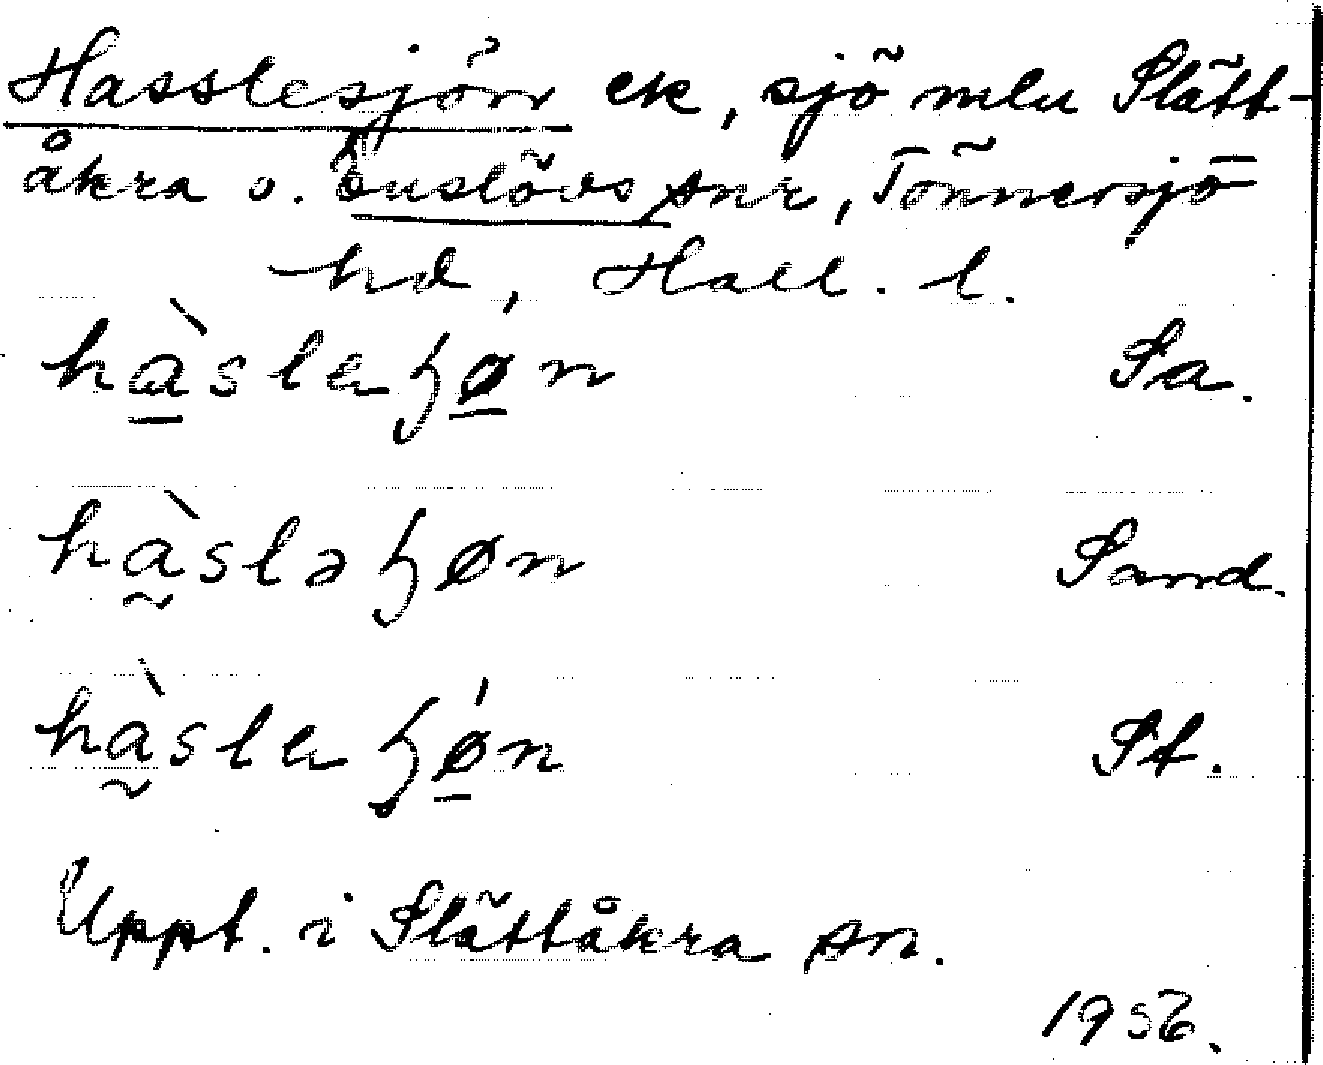 Hasslesjön ek, sjö mln Slätt-
åkra o. Enslövs snr, Tönnersjö
hd, Hall. l.
hàsleɧǿn Sa.
hàsləɧøn Sand.
hàsleɧǿn St.
Uppt. i Slättåkra sn.
1956.